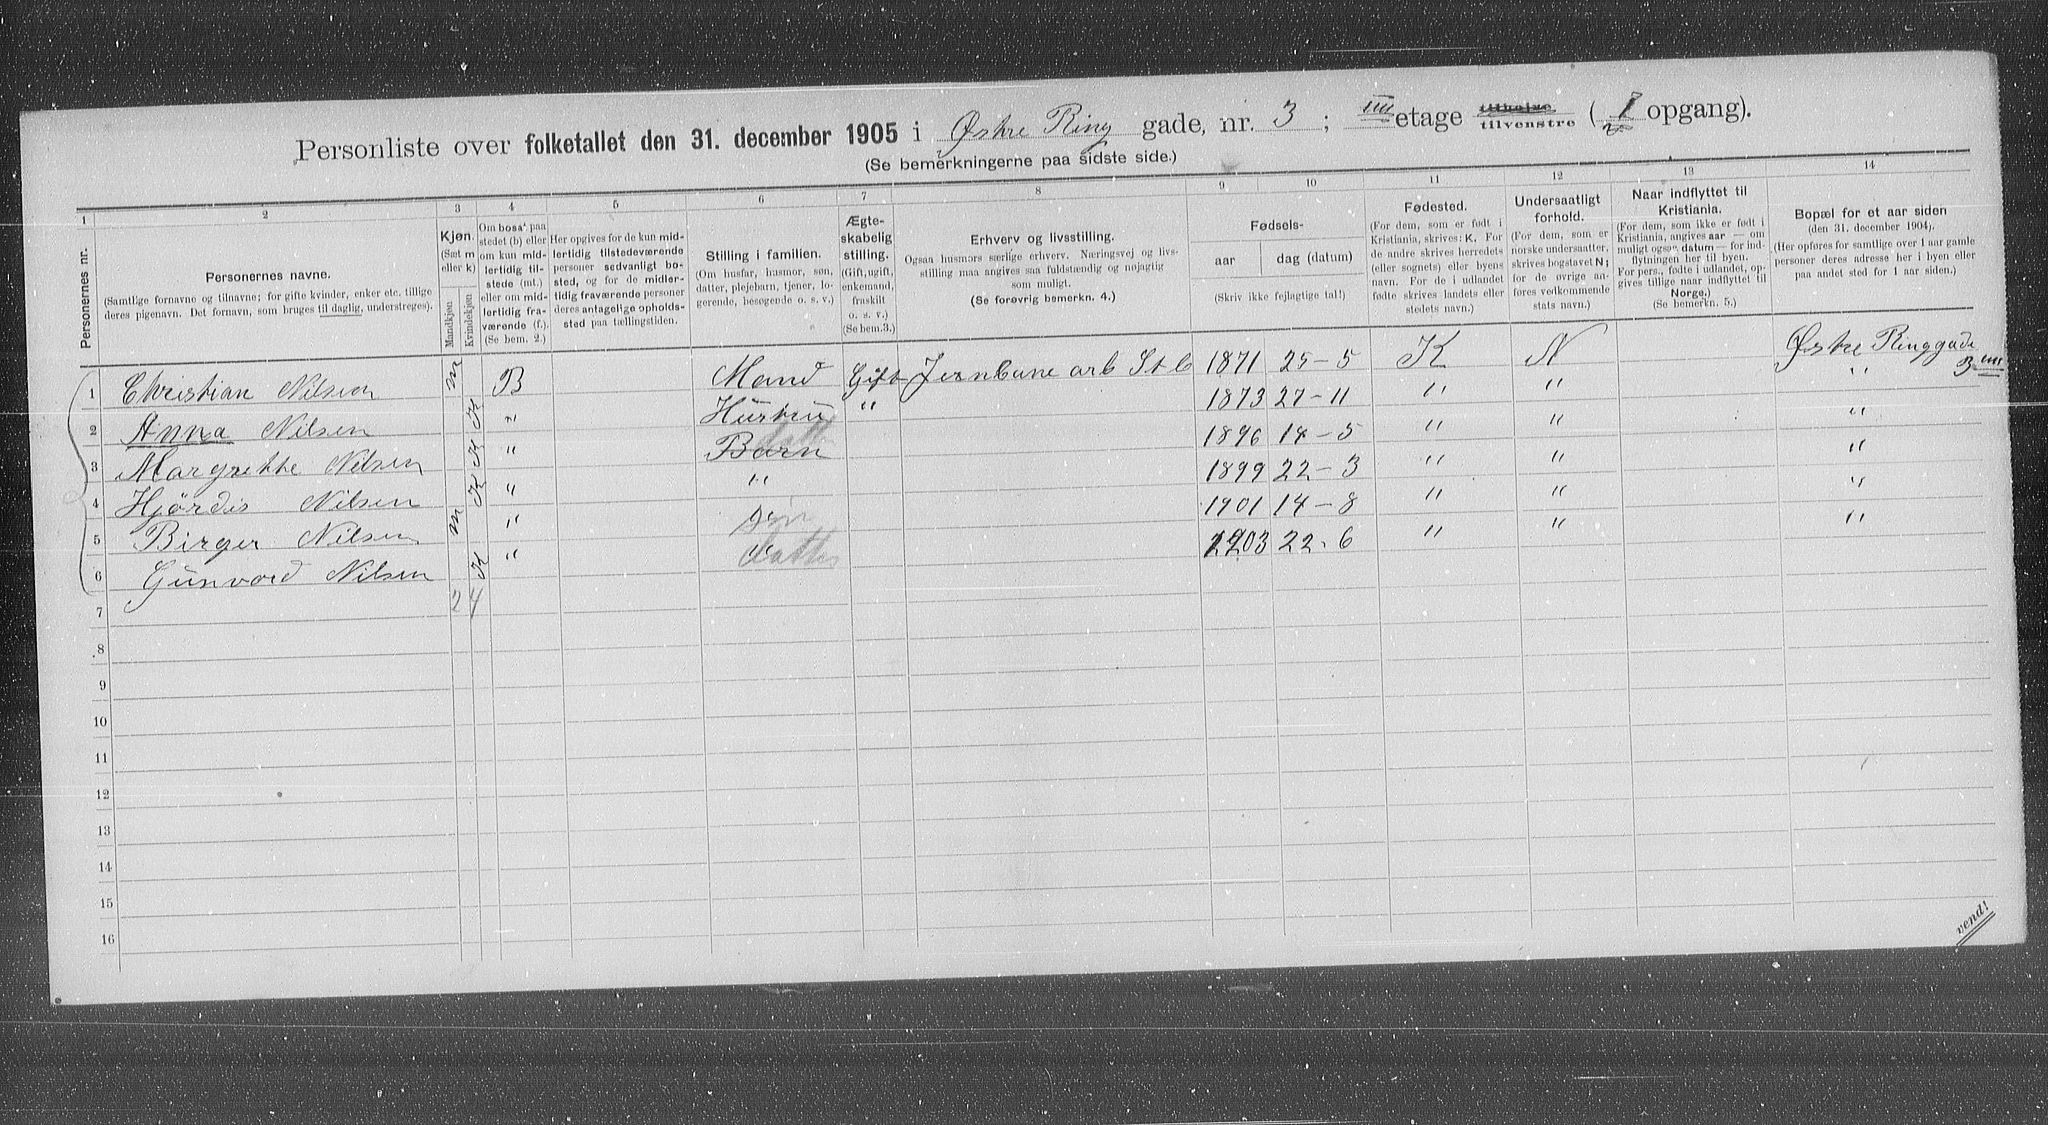 Personliste over folketallet den 31. december 1905 i Østre Ring gade, nr. 3 ; IIII etage tilhøire tilvenstre ( opgang).
(Se bemerkningerne paa sidste side.)
1 2 3 4 5 6 7 8 9 10 11 12 13 14
Personernes nr.
Personernes navne.
(Samtlige fornavne og tilnavne; for gifte kvinder, enker etc. tillige
deres pigenavn. Det fornavn, som bruges til daglig, understreges).
Kjøn.
(Sæt m
eller k)
Mandkjøn
Kvindekjøn
Om bosat paa
stedet (b) eller
om kun mid-
lertidig til-
stede (mt.)
eller om mid-
lertidig fra-
værende (f.).
(Se bem. 2.)
Her opgives for de kun mid-
lertidig tilstedeværende
personer sedvanligt bo-
sted, og for de midler-
tidig fraværende personer
deres antagelige opholds-
sted paa tællingstiden.
Stilling i familien.
(Om husfar, husmor, søn,
datter, plejebarn, tjener, lo-
gerende, besøgende o. s. v.)
Ægte-
skabelig
stilling.
(Gift, ugift,
enkemand,
fraskilt
o. s. v.)
(Se bem.3.)
Erhverv og livsstilling.
Ogsaa husmors særlige erhverv. Næringsvej og livs-
stilling maa angives saa fuldstændig og nøjagtig
som muligt.
(Se forøvrig bemerkn. 4.)
Fødsels-
aar dag (datum)
(Skriv ikke fejlagtige tal!)
Fødested.
(For dem, som er født i
Kristiania, skrives: K. For
de andre skrives herredets
(eller sognets) eller byens
navn. For de i udlandet
fødte skrives landets eller
stedets navn.)
Undersaatligt
forhold.
(For dem, som er
norske undersaatter,
skrives bogstavet N;
for de øvrige an-
føres vedkommende
stats navn.)
Naar indflyttet til
Kristiania.
(For dem, som ikke er født i
Kristiania, angives aar — om
muligt ogsaa datum — for ind-
flytningen her til byen.
For pers., fødte i udlandet, op-
gives tillige naar indflyttet til
Norge.)
(Se bemerkn. 5.)
Bopæl for et aar siden
(den 31. december 1904).
(Her opføres for samtlige over 1 aar gamle
personer deres adresse her i byen eller
paa andet sted for 1 aar siden.)
1 Christian Nilsen m B Mand Gift Jernbane arb St b 1871 25-5 K N Østre Ringgade 3 IIII
2 Anna Nilsen K " Hustru " 1873 27-11 " " "
3 Margrethe Nilsen K " Barn datter 1896 14-5 " " "
4 Hjördis Nilsen K " " 1899 22-3 " " "
5 Birger Nilsen m " " søn 1901 14-8 " " "
6 Gunvord Nilsen K " " datter 1903 22.6 " " "
7 2 4
8
9
10
11
12
13
14
15
16
vend!